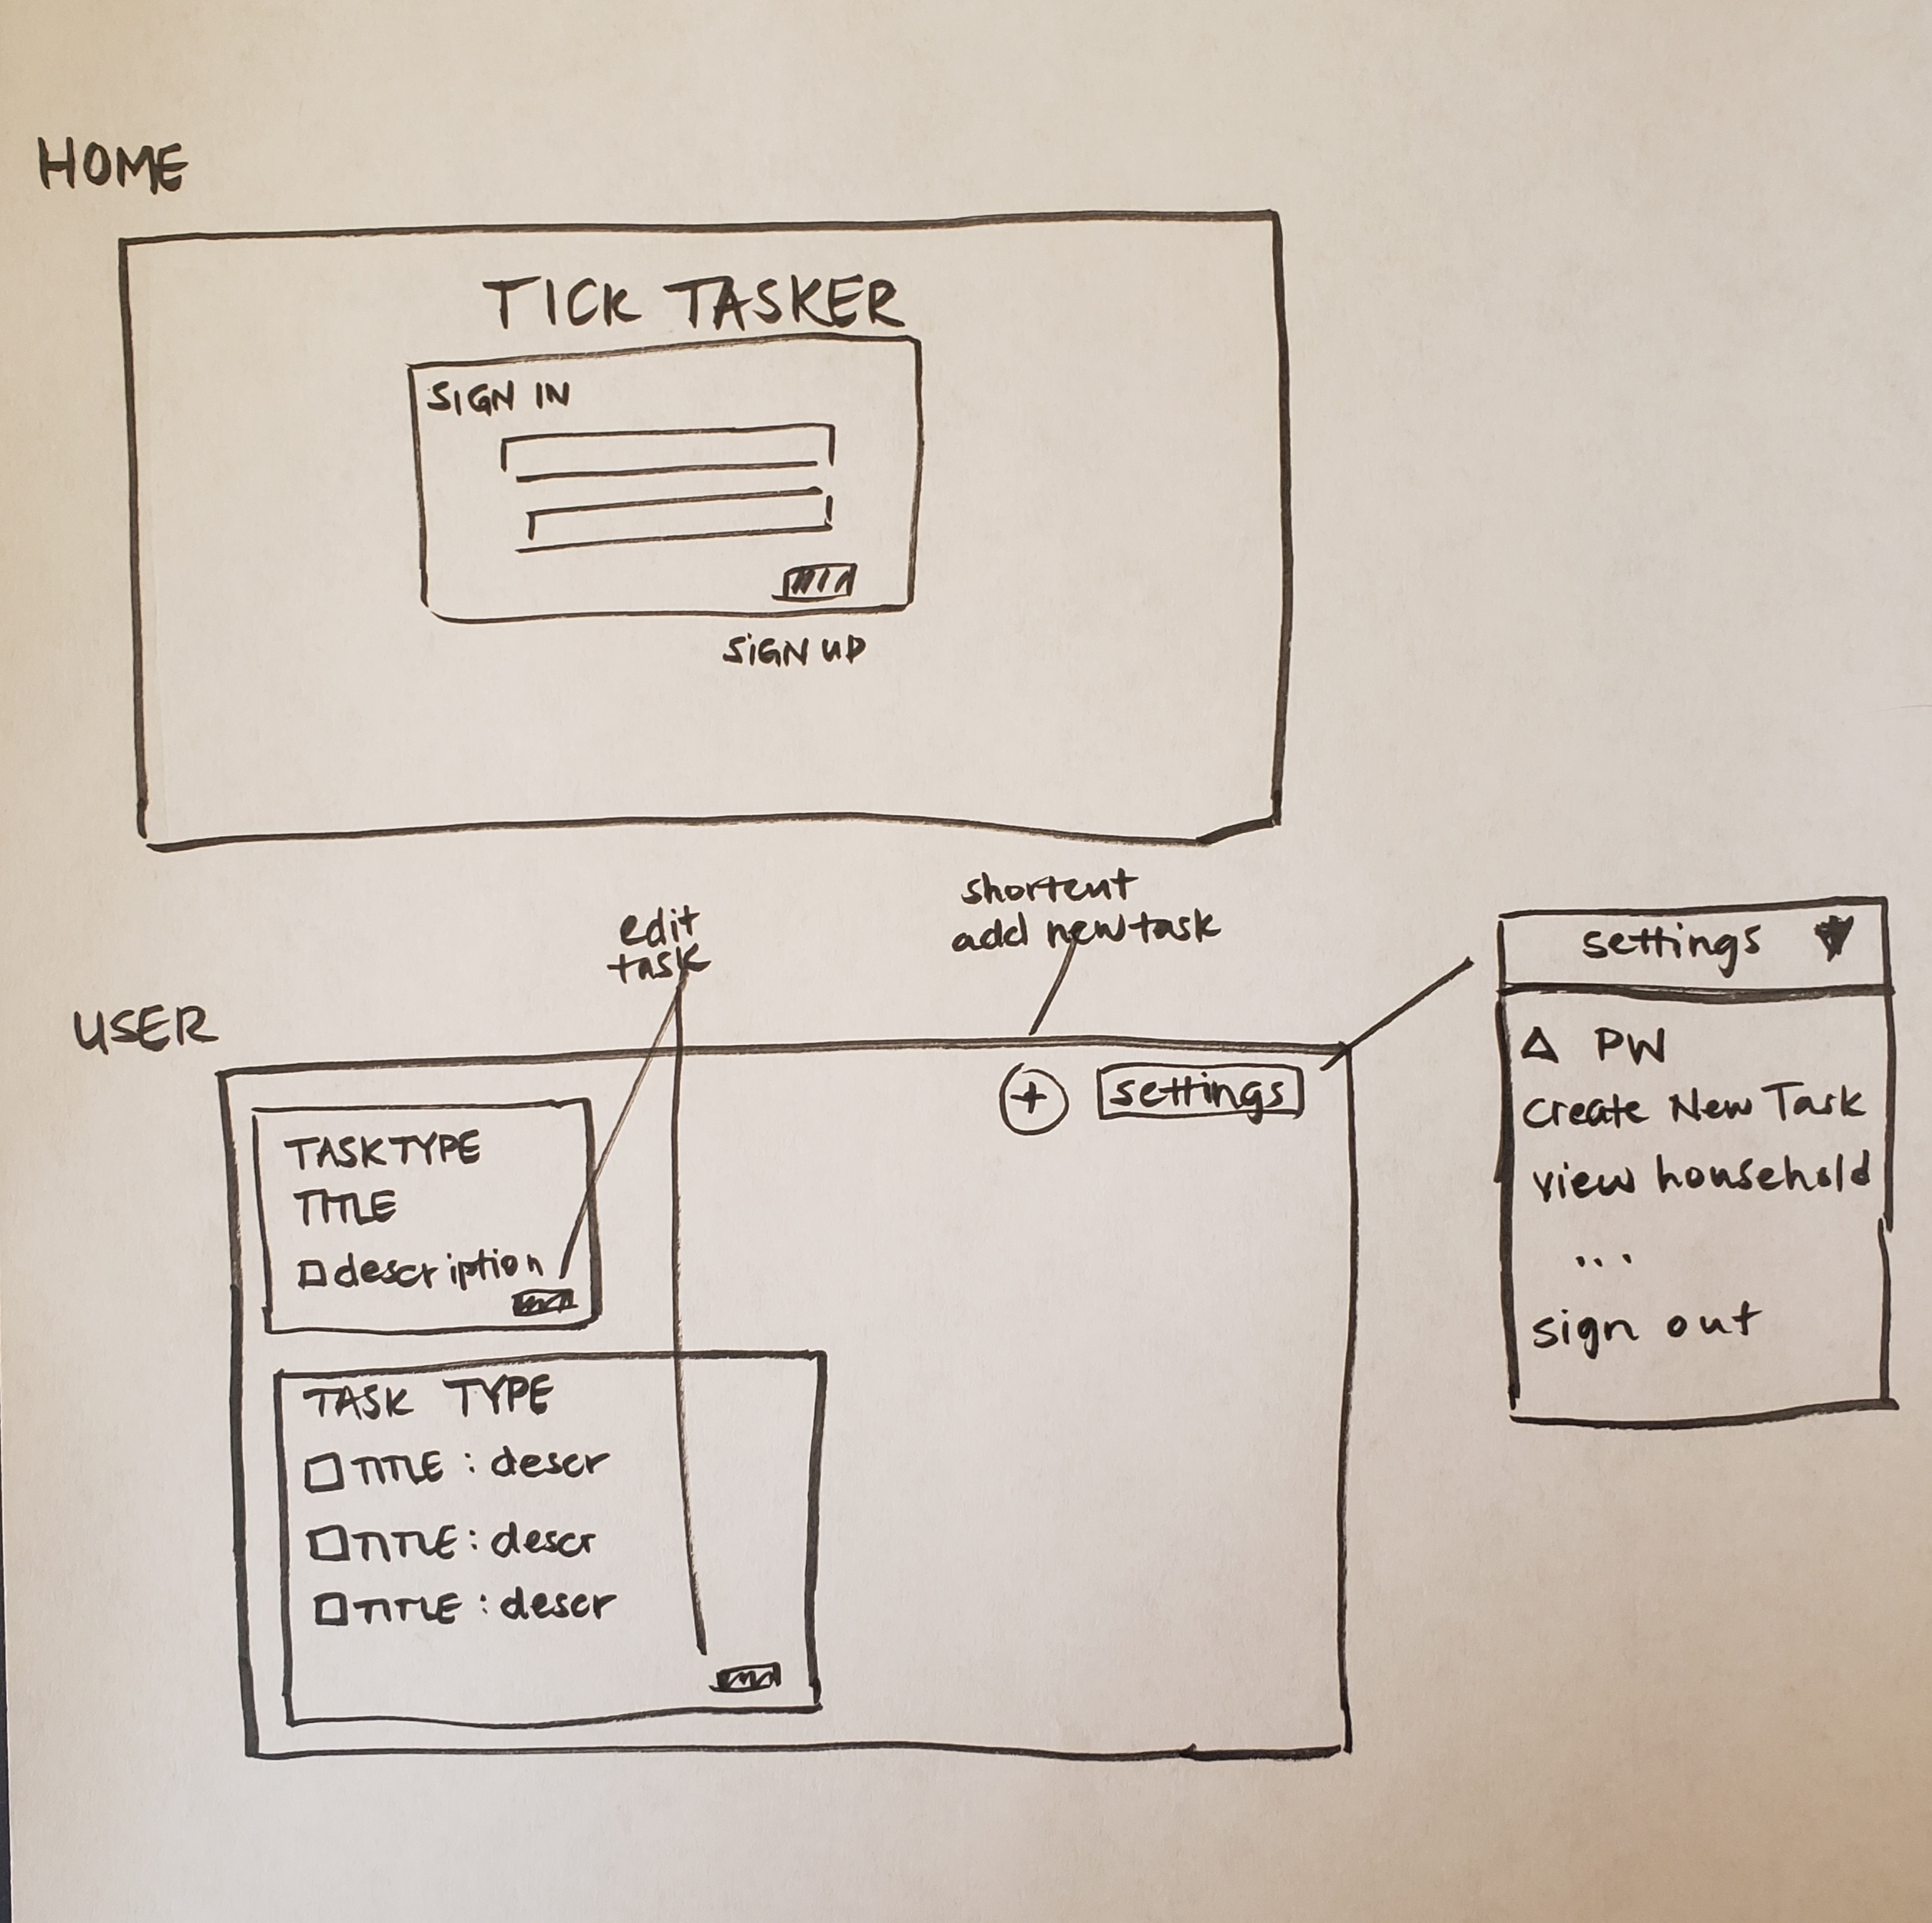 HOME
TICK TASKER
SIGN IN
SIGN UP
edit
task
shortcut
add new task
USER
+
settings
TASK TYPE
TITLE
description
TASK TYPE
TITLE : descr
TITLE : descr
TITLE : descr
settings
Δ PW
Create New Task
view household
...
sign out